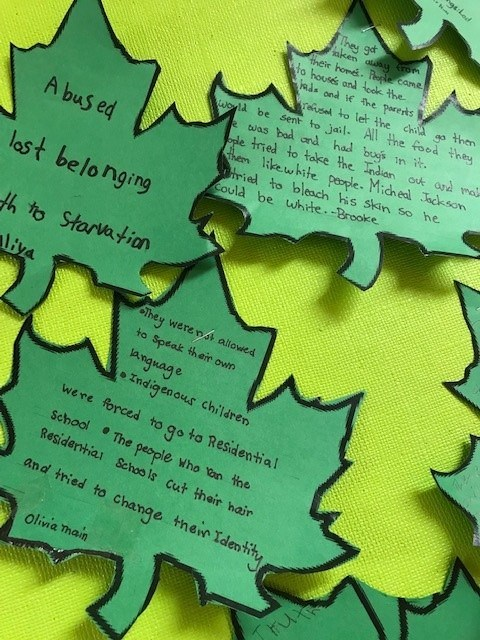 Abused
lost belonging
th to Starvation
They got
taken away from
their homes. People came
to houses and took the
kids and if the parents
refused to let the child go then
would be sent to jail. All the food they
was bad and had bugs in it.
ople tried to take the Indian out and mak
them like white people. Micheal Jackson
tried to bleach his skin so he
could be white. -Brooke
• They were not allowed
to speak their own
language
• Indigenous children
were forced to go to Residential
school • The people who ran the
Residential Schools cut their hair
and tried to change their Identity
Olivia main